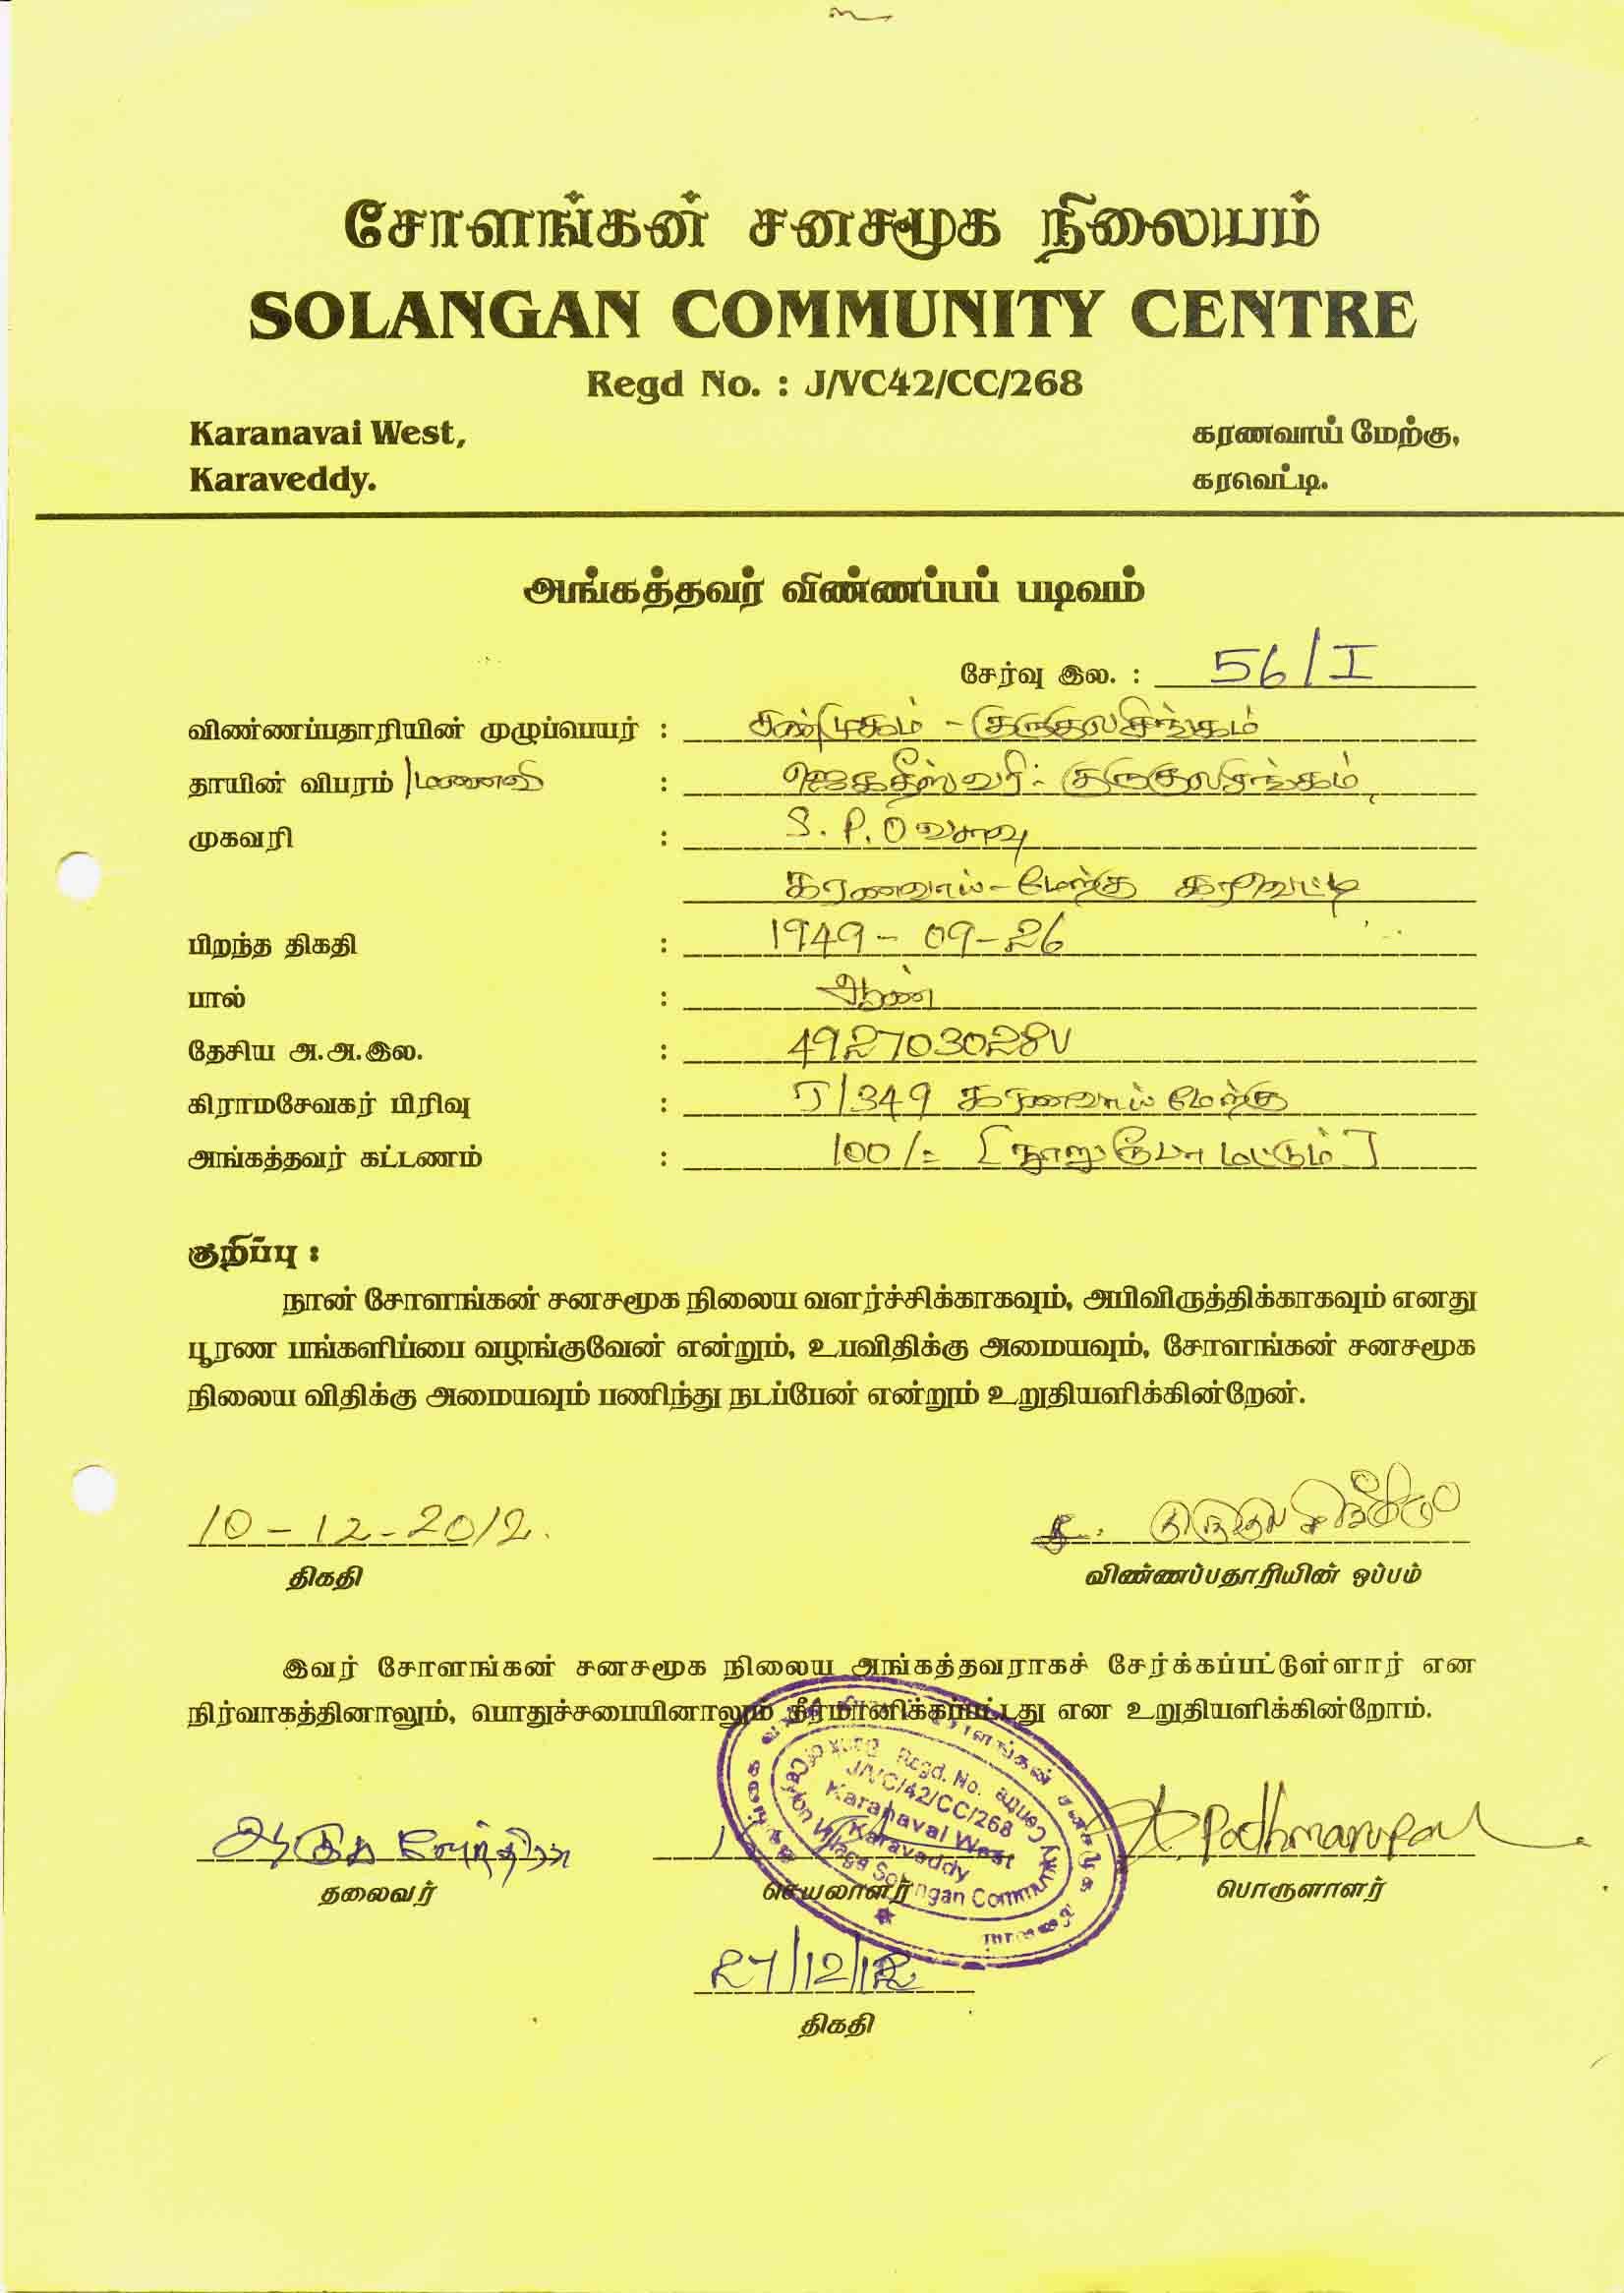 சோளங்கன் சனசமூக நிலையம்
SOLANGAN COMMUNITY CENTRE
Regd No. : J/VC42/CC/268
Karanavai West,
கரணவாய் மேற்கு,
Karaveddy.
கரவெட்டி.
அங்கத்தவர் விண்ணப்பப் படிவம்
சேர்வு இல. : 56/I
விண்ணப்பதாரியின் முழுப்பெயர் : சண்முகம் - குருகுலசிங்கம்
தாயின் விபரம் /மனைவி : ஜெகதீஸ்வரி - குருகுலசிங்கம்
முகவரி : S.P.O
கரணவாய் - மேற்கு கரவெட்டி
பிறந்த திகதி : 1949 - 09 - 26
பால் : ஆண்
தேசிய அ.அ.இல. : 492703028V
கிராமசேவகர் பிரிவு : J/349 கரணவாய் மேற்கு
அங்கத்தவர் கட்டணம் : 100/= [நூறு ரூபா மட்டும்]
குறிப்பு :
நான் சோளங்கன் சனசமூக நிலைய வளர்ச்சிக்காகவும், அபிவிருத்திக்காகவும் எனது
பூரண பங்களிப்பை வழங்குவேன் என்றும், உபவிதிக்கு அமையவும், சோளங்கன் சனசமூக
நிலைய விதிக்கு அமையவும் பணிந்து நடப்பேன் என்றும் உறுதியளிக்கின்றேன்.
10 - 12 - 2012.
திகதி
விண்ணப்பதாரியின் ஒப்பம்
இவர் சோளங்கன் சனசமூக நிலைய அங்கத்தவராகச் சேர்க்கப்பட்டுள்ளார் என
நிர்வாகத்தினாலும், பொதுச்சபையினாலும் தீர்மானிக்கப்பட்டது என உறுதியளிக்கின்றோம்.
Regd. No.
J/VC/42/CC/268
Karanavai West
Karaveddy
தலைவர்
செயலாளர்
பொருளாளர்
27/12/12
திகதி